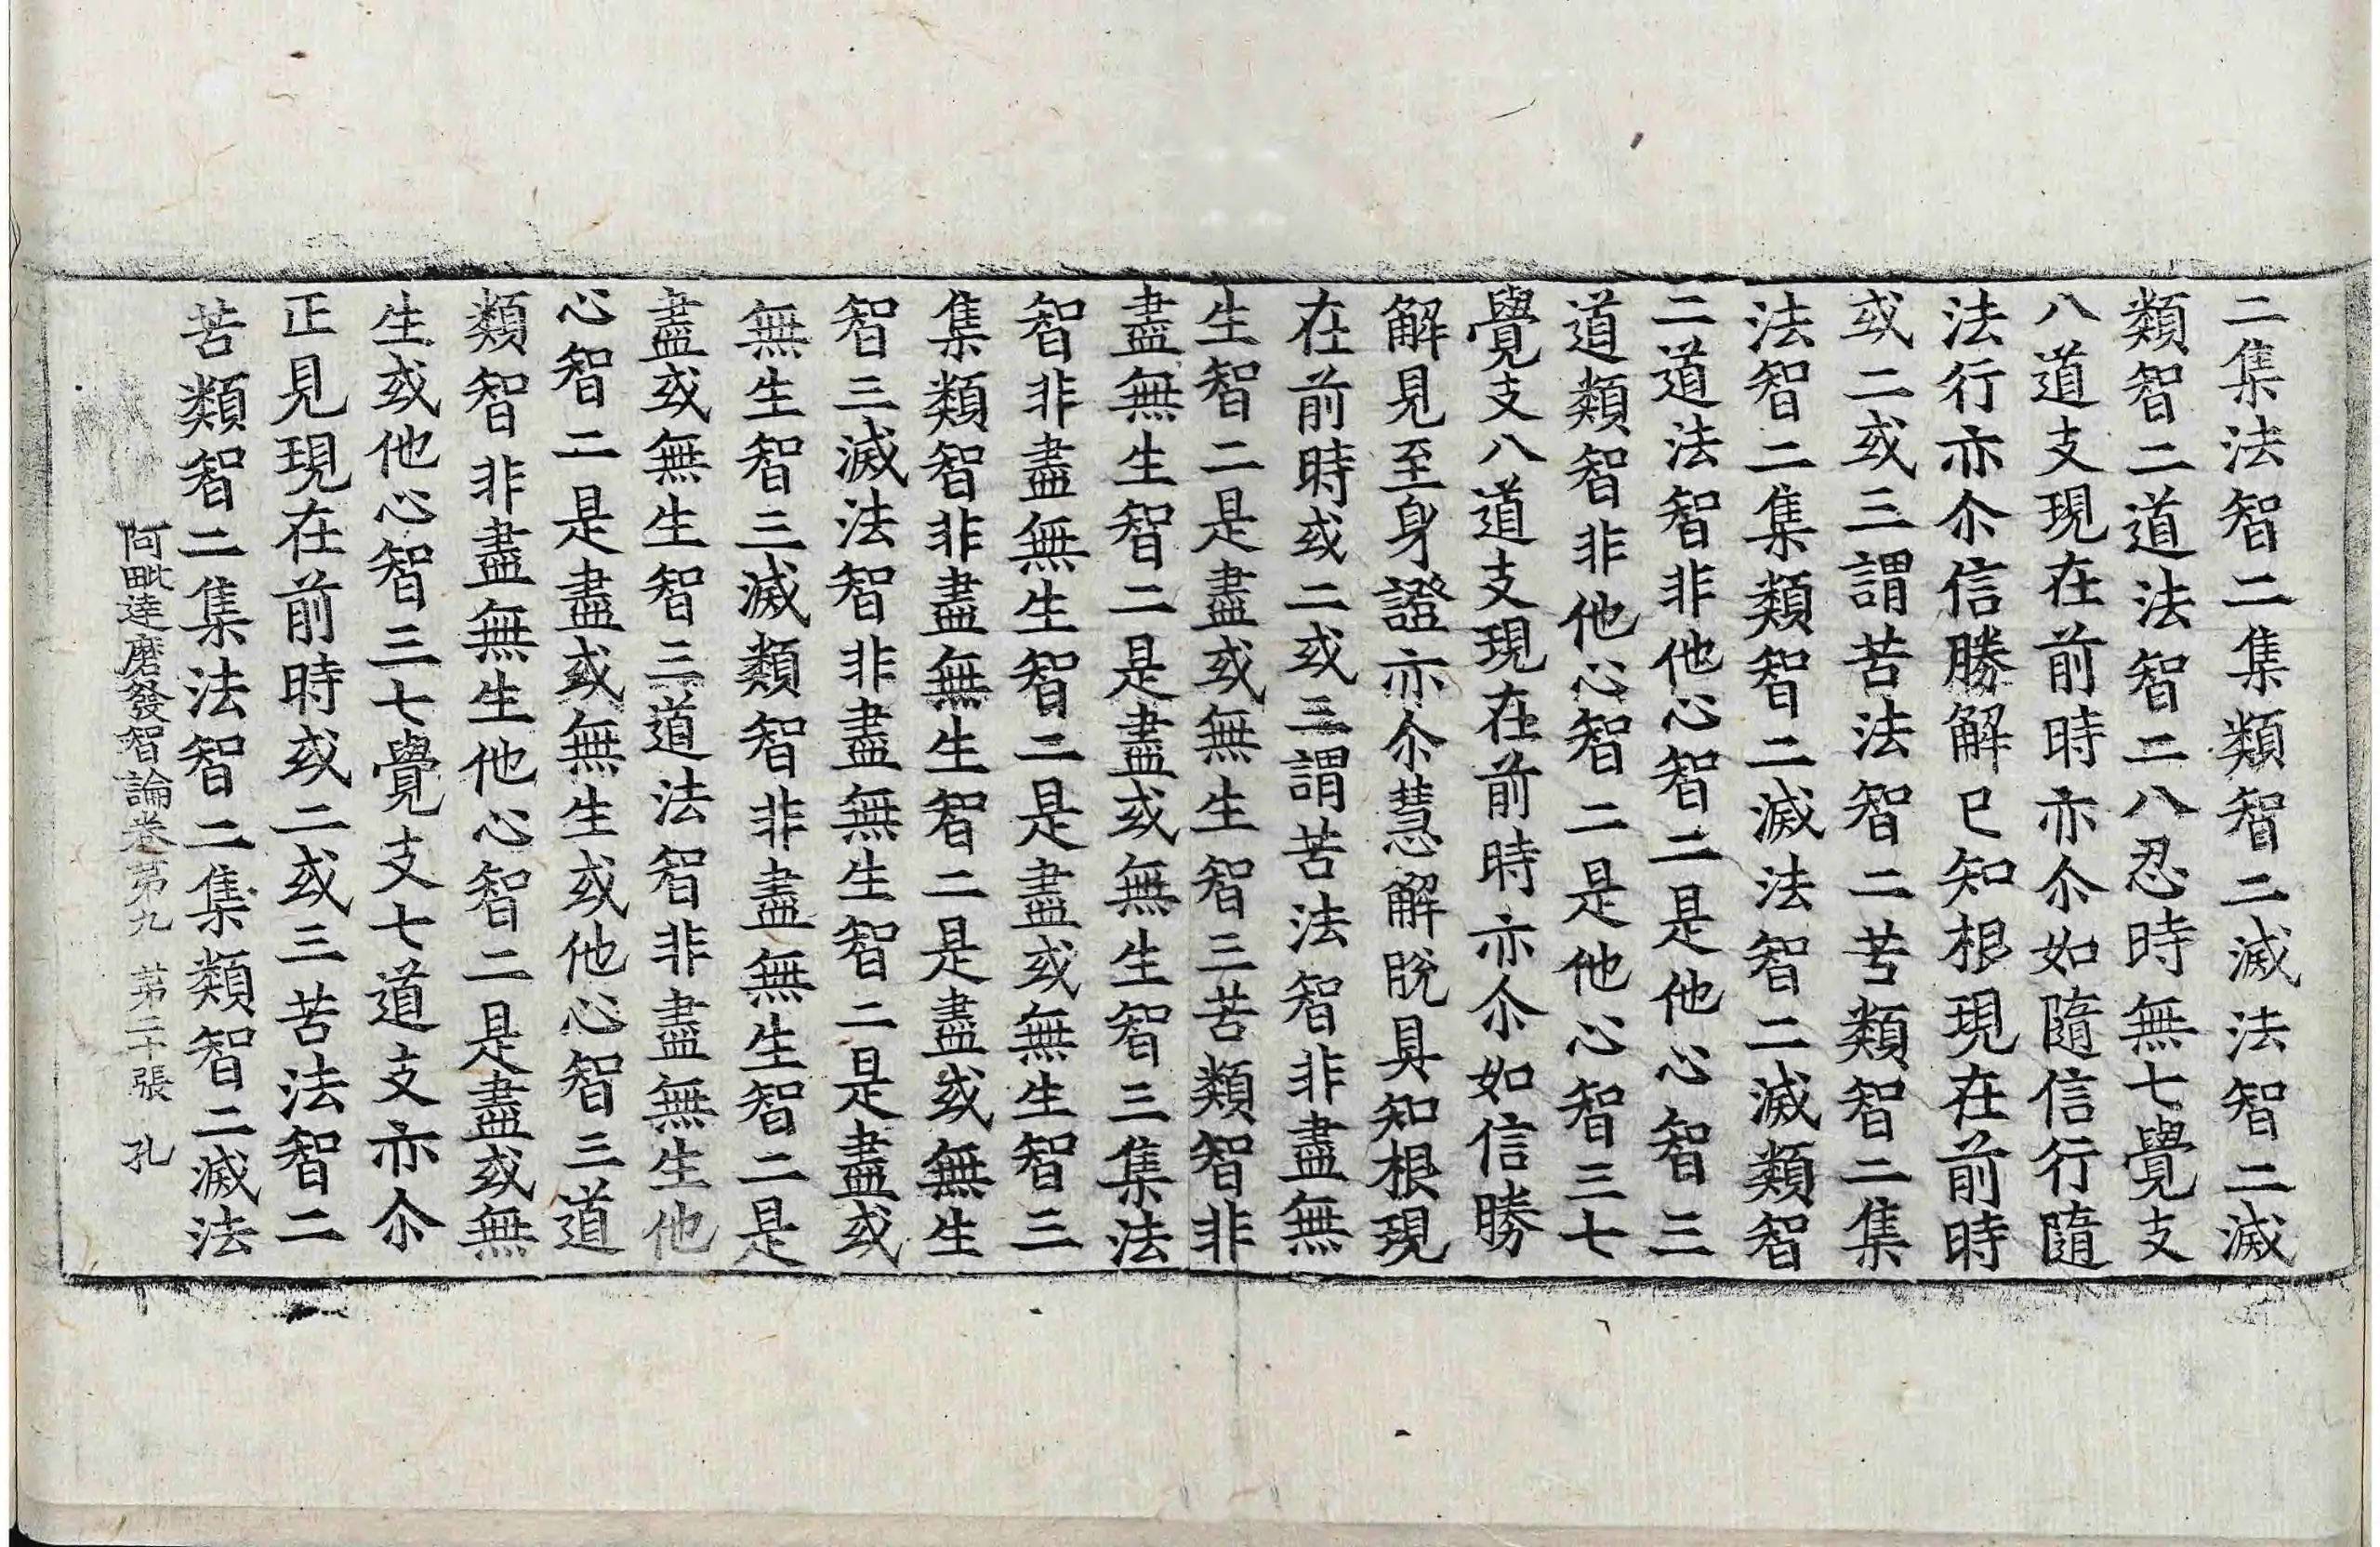 二集法智二集類智二滅法智二滅
類智二道法智二八忍時無七覺支
八道支現在前時亦尒如隨信行隨
法行亦尒信勝解已知根現在前時
或二或三謂苦法智二苦類智二集
法智二集類智二滅法智二滅類智
二道法智非他心智二是他心智三
道類智非他心智二是他心智三七
覺支八道支現在前時亦尒如信勝
解見至身證亦尒慧解脫具知根現
在前時或二或三謂苦法智非盡無
生智二是盡或無生智三苦類智非
盡無生智二是盡或無生智三集法
智非盡無生智二是盡或無生智三
集類智非盡無生智二是盡或無生
智三滅法智非盡無生智二是盡或
無生智三滅類智非盡無生智二是
盡或無生智三道法智非盡無生他
心智二是盡或無生或他心智三道
類智非盡無生他心智二是盡或無
生或他心智三七覺支七道支亦尒
正見現在前時或二或三苦法智二
苦類智二集法智二集類智二滅法
阿毗達磨發智論卷第九 第二十張 孔